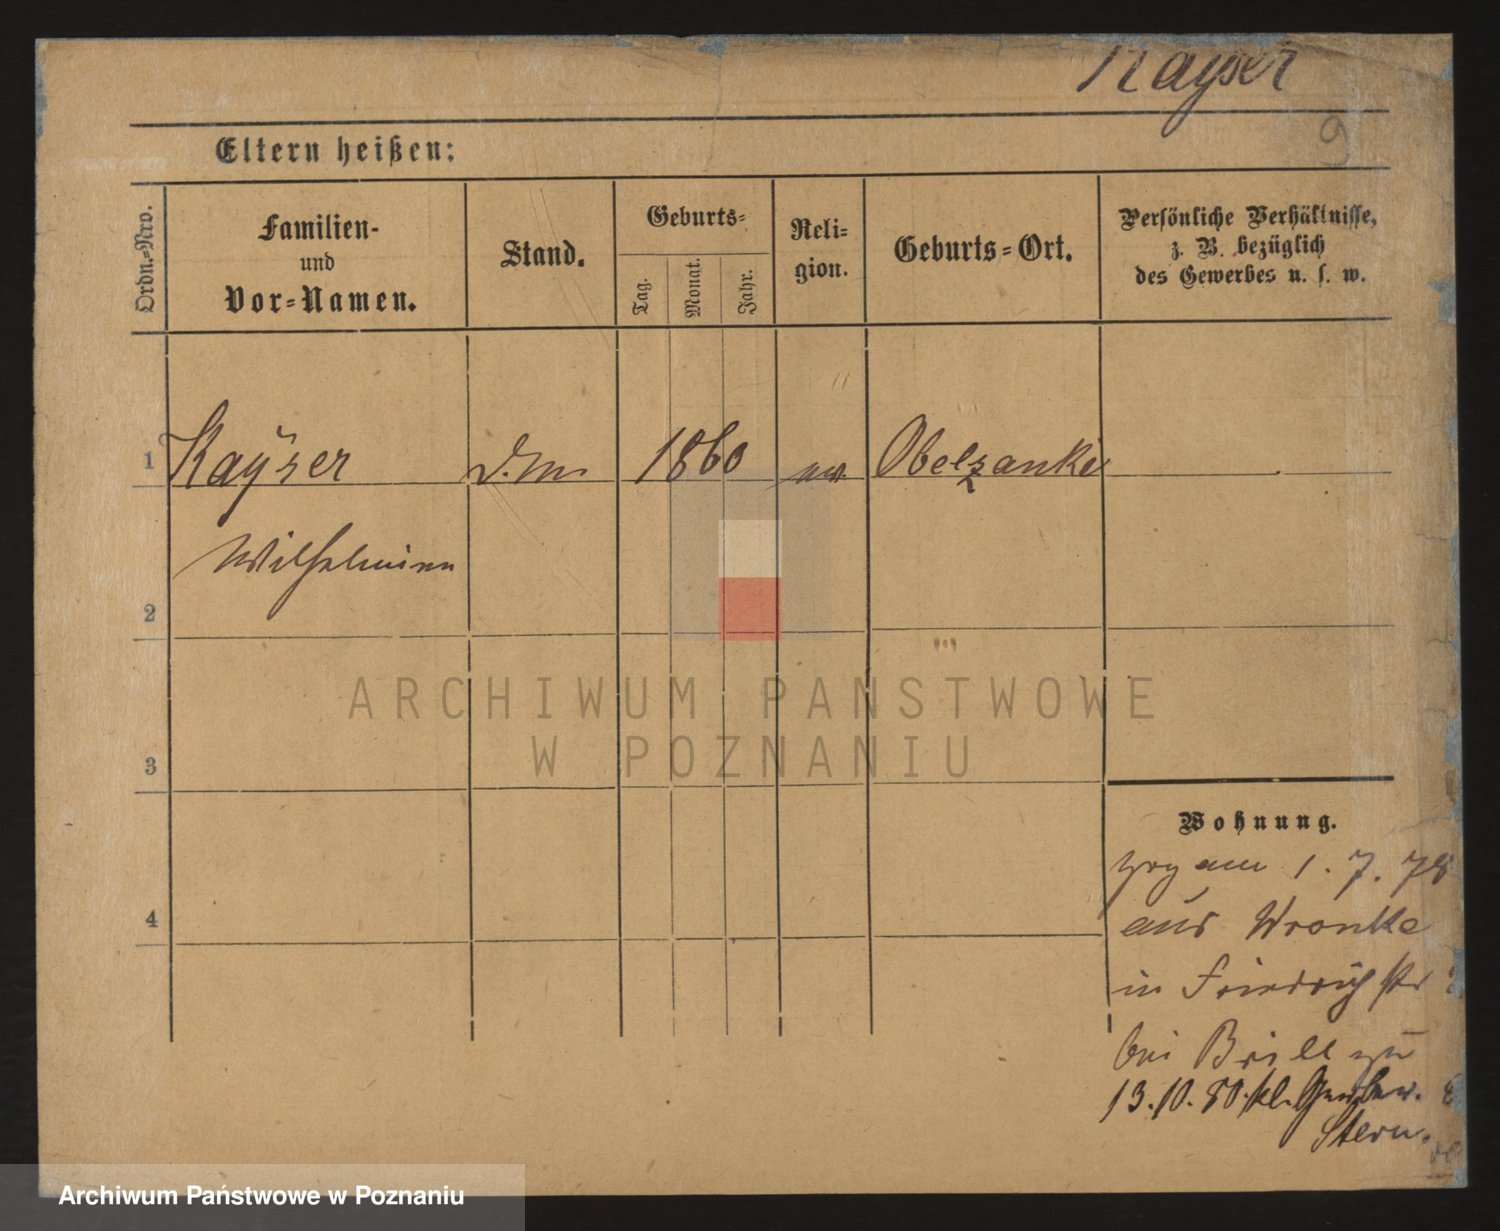 Kayser
9
Eltern heißen:
Ordn.-Nro.
Familien-
und
Vor-Namen.
Stand.
Geburts-
Tag.
Monat.
Jahr.
Reli-
gion.
Geburts-Ort.
Persönliche Verhältnisse,
z. B. bezüglich
des Gewerbes u. s. w.
1
Kayser
1860
Obelzanki
Wilhelmine
2
3
4
ARCHIWUM PAŃSTWOWE
W POZNANIU
Wohnung.
zog am 1. 7. 78
aus Wronke
in Friedrichstr
bei Brill zu
13.10.80. kl. Gerber.
Stern.
Archiwum Państwowe w Poznaniu